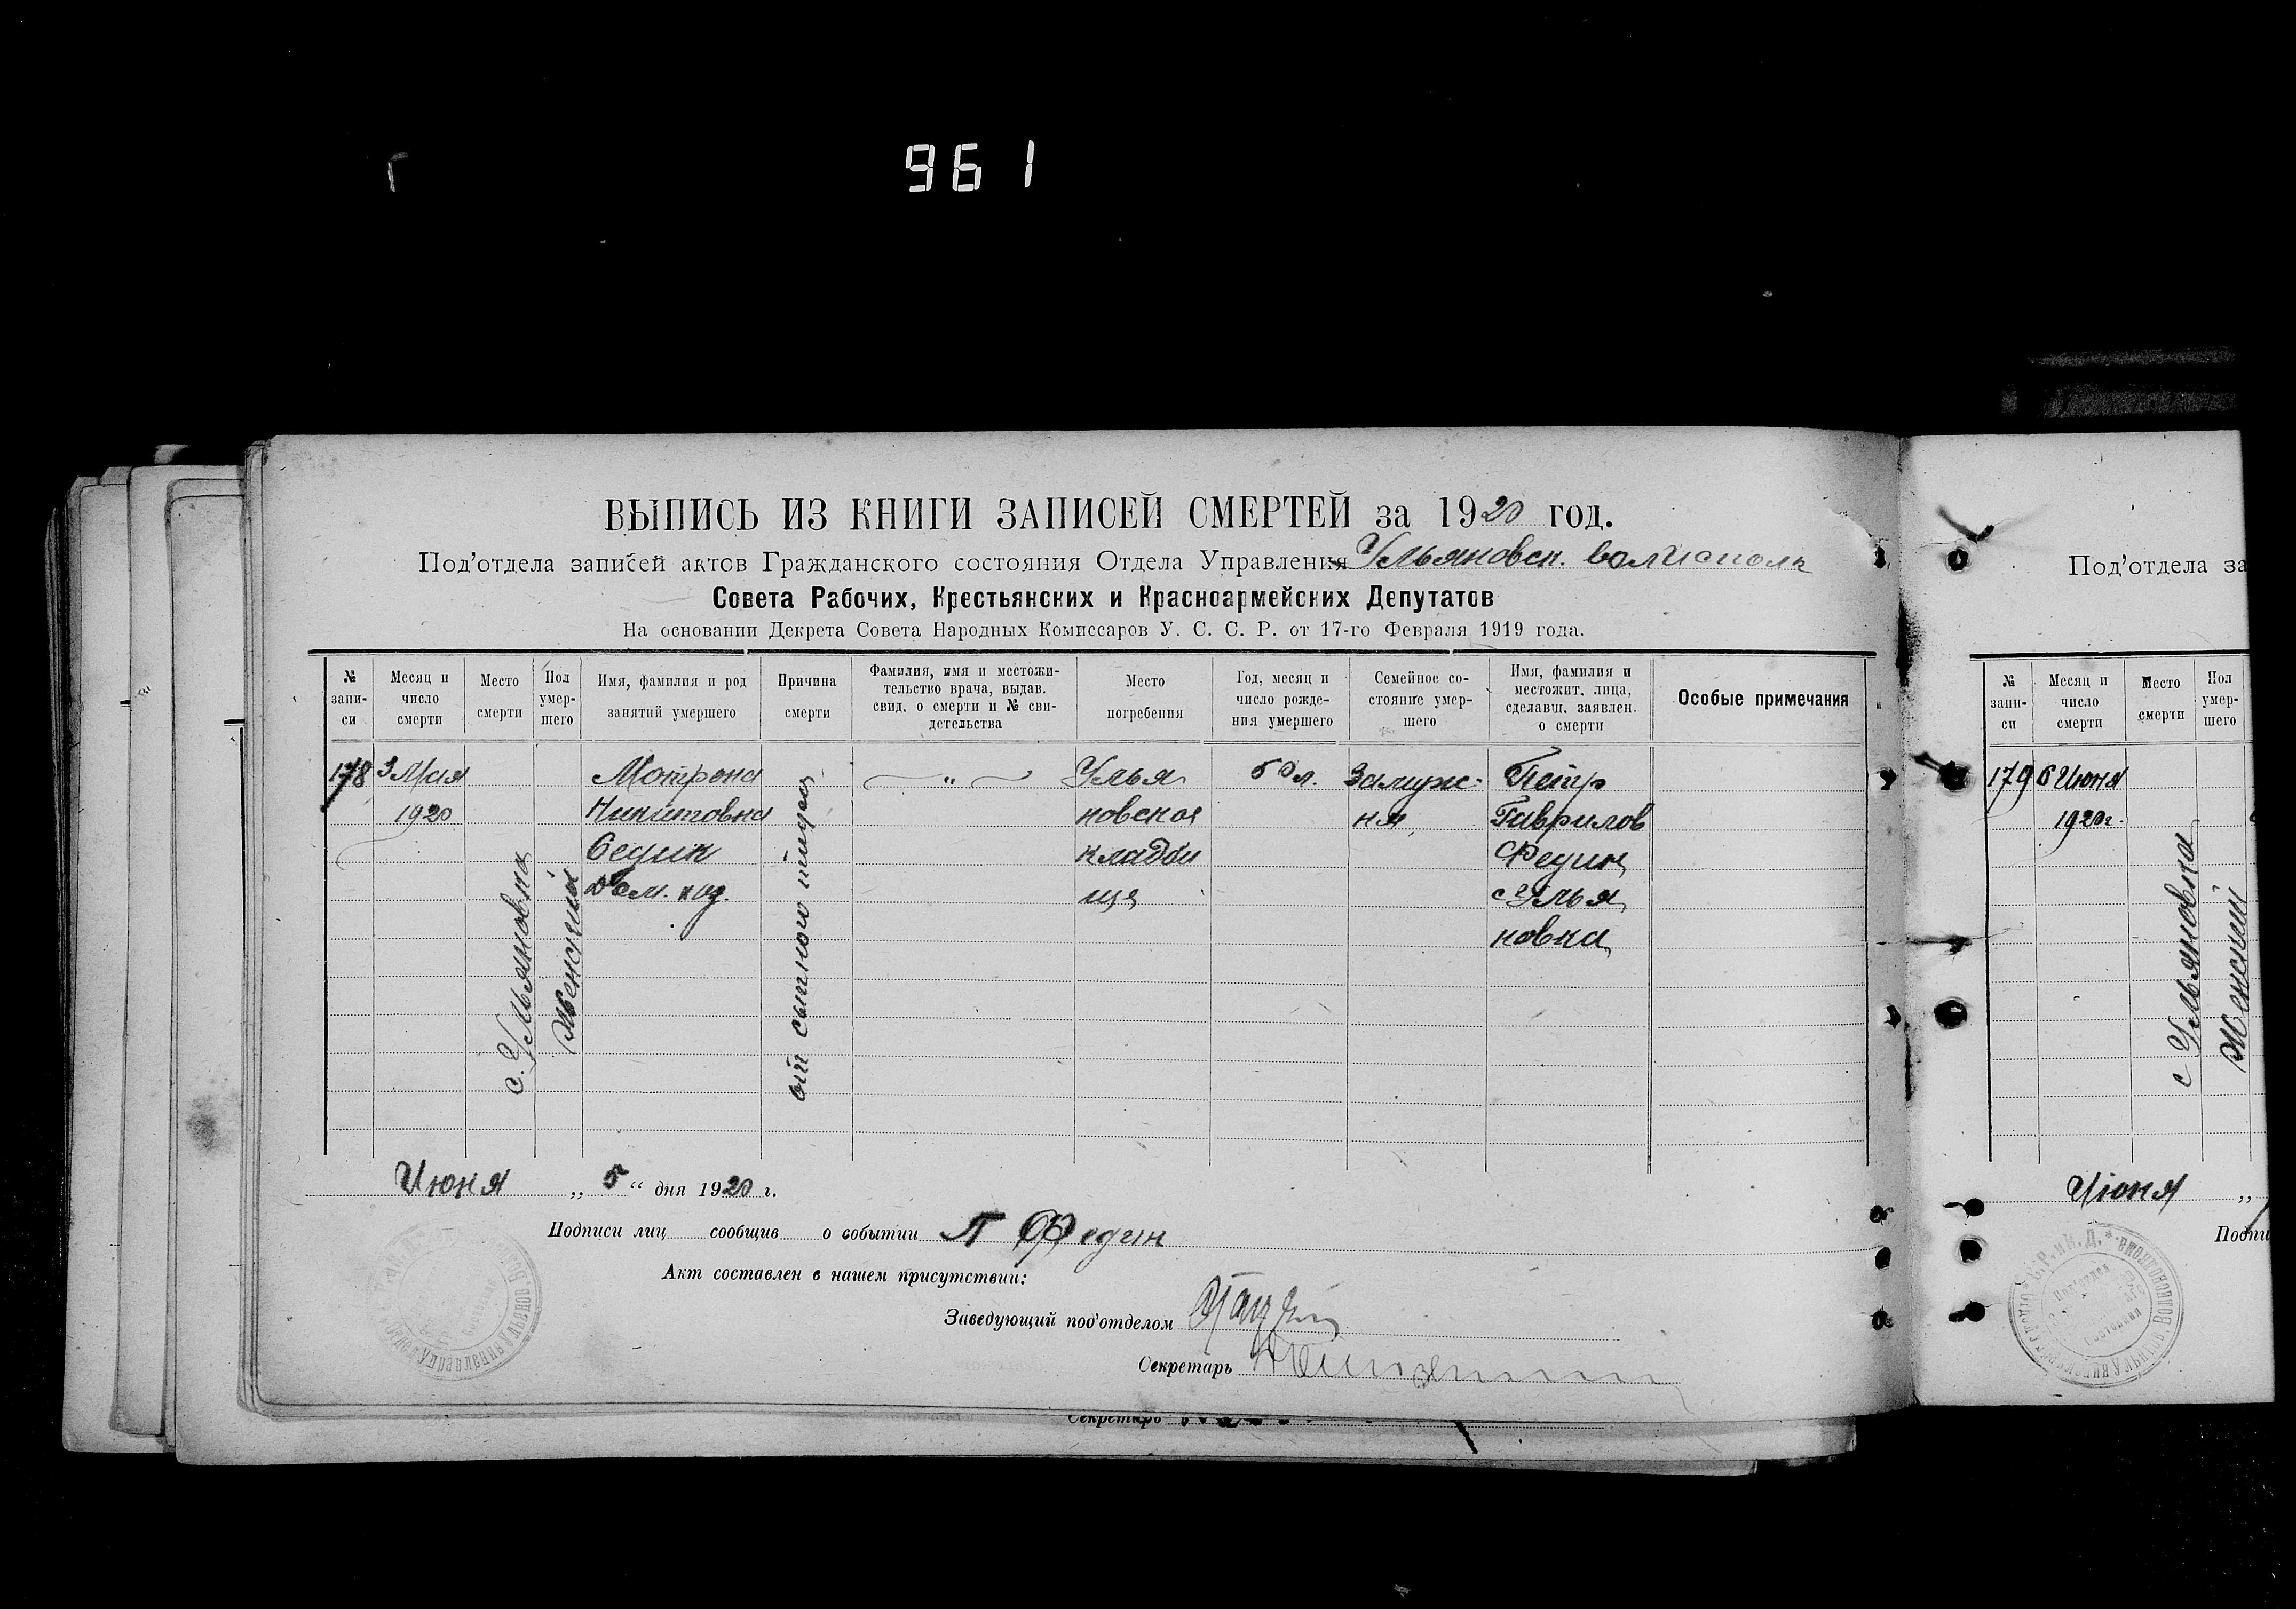 961
ВЫПИСЬ ИЗ КНИГИ ЗАПИСЕЙ СМЕРТЕЙ за 1920 год.
Под'отдела записей актов Гражданского состояния Отдела Управления Ульяновск. волисполк
Совета Рабочих, Крестьянских и Красноармейских Депутатов
На основании Декрета Совета Народных Комиссаров У. С. С. Р. от 17-го Февраля 1919 года.
№
запи-
си
Месяц и
число
смерти
Место
смерти
Пол
умер-
шего
Имя, фамилия и род
занятий умершего
Причина
смерти
Фамилия, имя и местожи-
тельство врача, выдав.
свид. о смерти и № сви-
детельства
Место
погребения
Год, месяц и
число рожде-
ния умершего
Семейное со-
стояние умер-
шего
Имя, фамилия и
местожит. лица,
сделавш. заявлен.
о смерти
Особые примечания
178
3 Мая
1920
с. Ульяновка
Женский
Мотрона
Никитовна
Федин
Дом. хоз.
от сыпного тифа
— " —
Улья
новское
кладби
ще
50 л.
Замуж-
ня
Петр
Гаврилов
Федин
с Улья
новка
Июня „ 5 “ дня 1920 г.
Подписи лиц сообщив о событии П Федин
Акт составлен в нашем присутствии:
Заведующий под'отделом
Секретарь
Секретарь
Под'отдела за
№
запи-
си
Месяц и
число
смерти
Место
смерти
Пол
умер-
шего
179
6 Июня
1920 г.
с Ульяновка
Женский
Июня „
Подпи